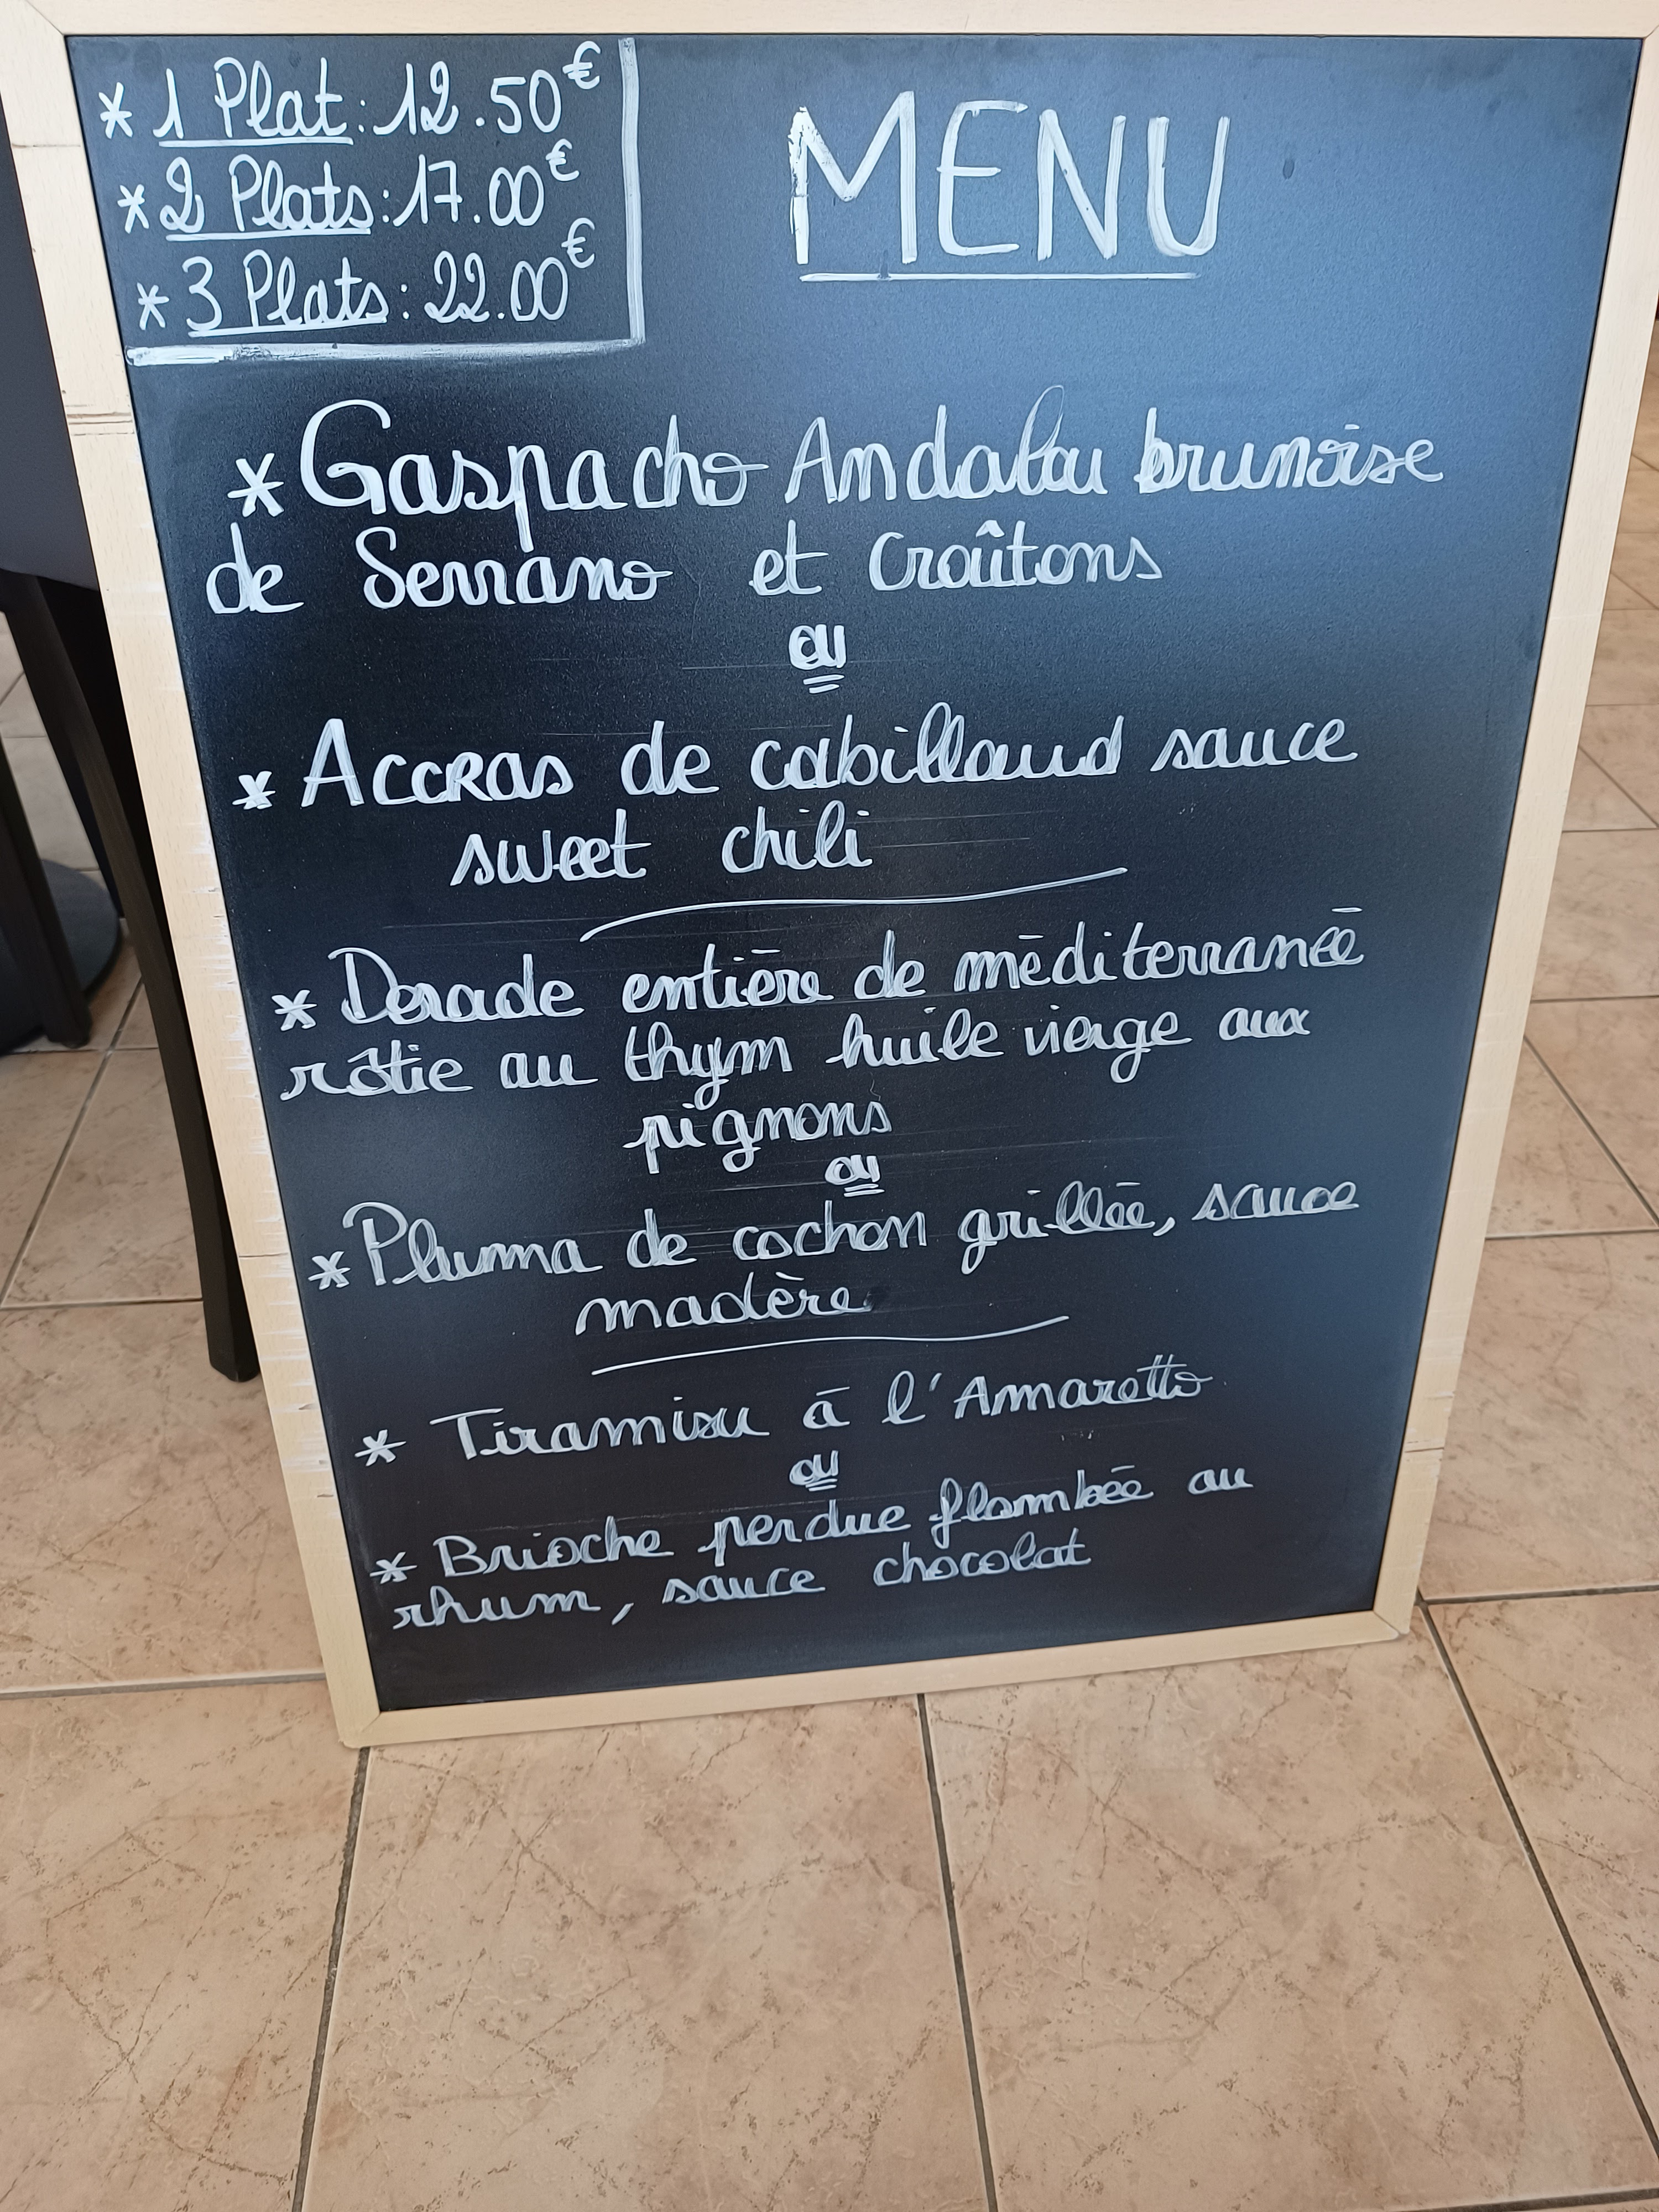 * 1 Plat : 12.50€
* 2 Plats : 17.00€
* 3 Plats : 22.00€
MENU
* Gaspacho Andalou brunoise
de Serrano et Croûtons
ou
* Accras de cabillaud sauce
sweet chili
* Dorade entière de méditerranée
rôtie au thym huile vierge aux
pignons
ou
* Pluma de cochon grillée, sauce
madère
* Tiramisu à l'Amaretto
ou
* Brioche perdue flambée au
rhum, sauce chocolat